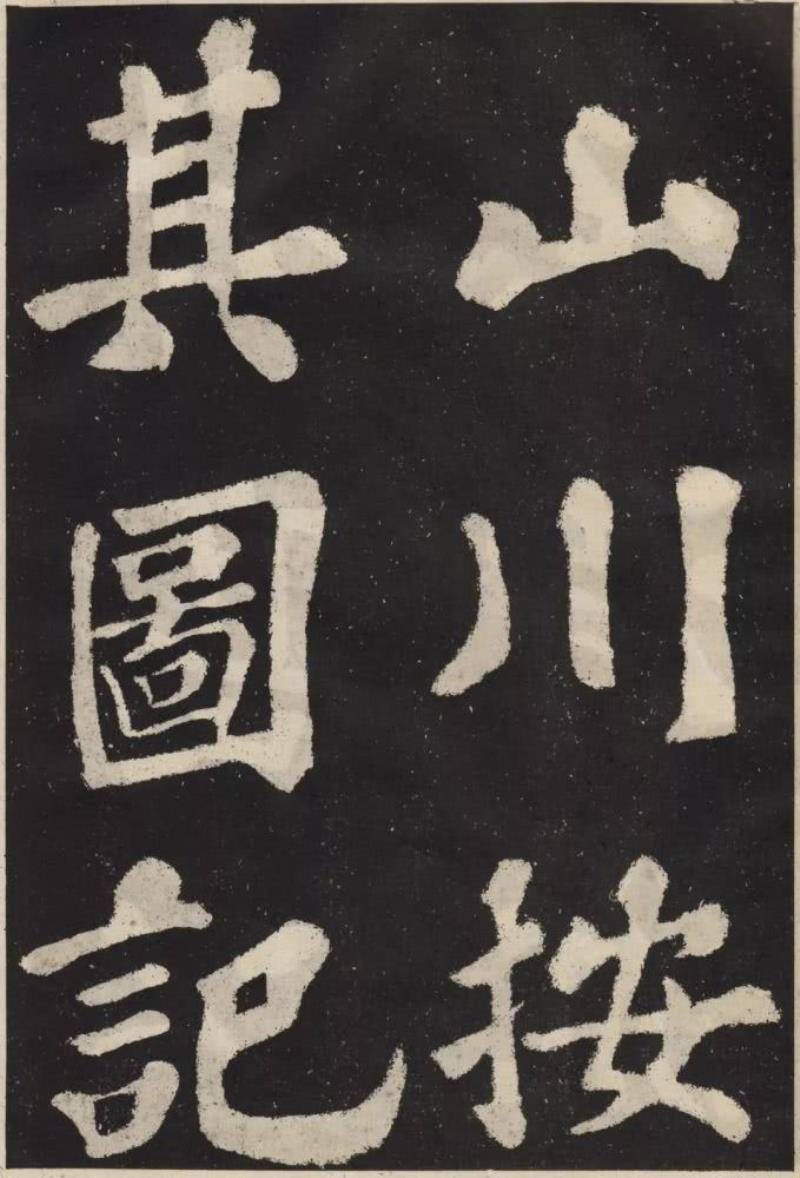 山川按
其圖記